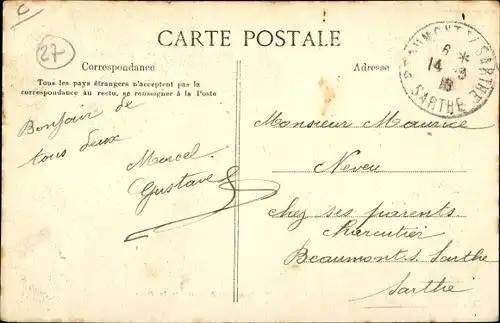 C
27
CARTE POSTALE
Correspondance
Tous les pays étrangers n'acceptent pas la
correspondance au recto, se renseigner à la Poste
Bonjour de
tous deux
Marcel
Gustave
Adresse
BEAUMONT S/ SARTHE
6 *
14 - 3
SARTHE
Monsieur Maurice
Neveu
chez ses parents
Charcutier
Beaumont s. Sarthe
Sarthe